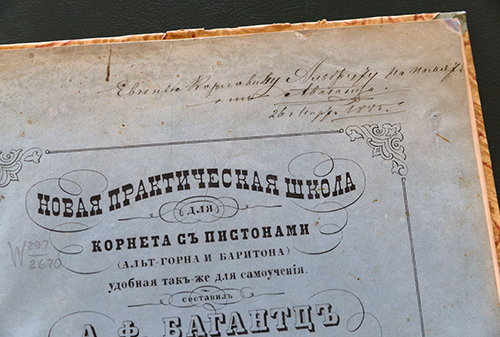 Евгенію Карловичу Альбрехту на память
отъ Багантца
26 Марта
НОВАЯ ПРАКТИЧЕСКАЯ ШКОЛА
ДЛЯ
КОРНЕТА СЪ ПИСТОНАМИ
(АЛЬТ-ГОРНА И БАРИТОНА)
удобная такъ-же для самоученія.
СОСТАВИЛЪ
А. Ф. БАГАНТЦЪ
W 207
2670